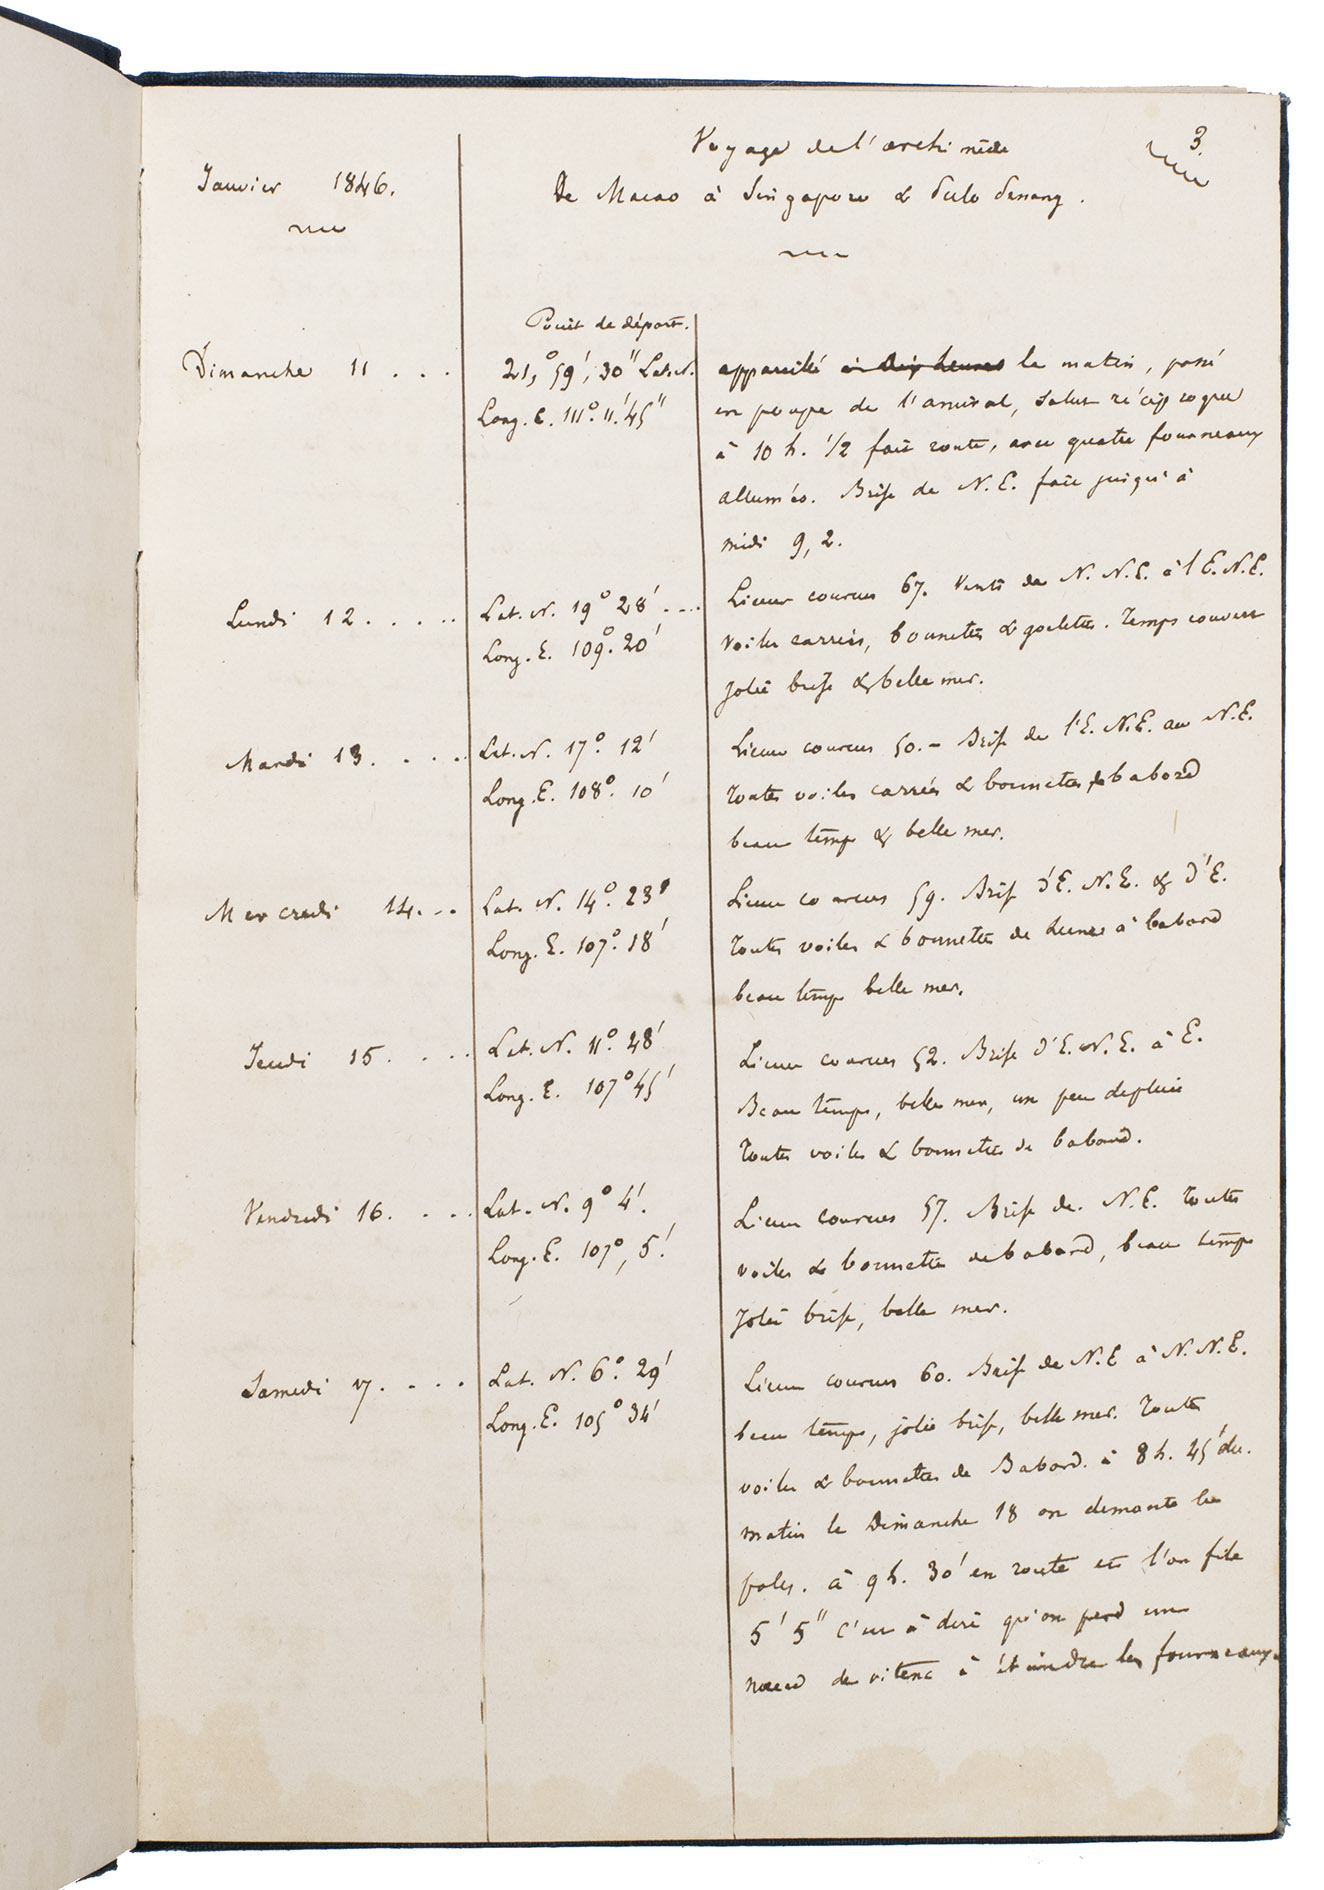 3.
Voyage de l'archimède
Janvier 1846.
De Macao à Singapore & Pulo Penang.
Point de départ.
Dimanche 11 . . . 21,° 59', 30" Lat. N. appareillé à dix heures le matin, passé
Long. E. 111°. 11.' 45" en poupe de l'amiral, salut réciproque
à 10 h. 1/2 fait route, avec quatre fourneaux
allumés. Brise de N. E. fait jusqu'à
midi 9, 2.
Lundi 12 . . . . . Lat. N. 19° 28' . . . . Lieues courues 67. Vents de N. N. E. à l'E. N. E.
Long. E. 109°. 20' Voiles carrées, bonnettes & goelettes. Temps couvert
Jolie brise & belle mer.
Mardi 13. . . . . Lat. N. 17°. 12' Lieues courues 50. - Brise de l'E. N.E. au N.E.
Long. E. 108°. 10' Toutes voiles carrées & bonnettes babord
beau temps & belle mer.
Mercredi 14. . . Lat. N. 14°. 23' Lieues courues 59. Brise d'E. N. E. & d'E.
Long. E. 107°. 18' Toutes voiles & bonnettes de hune à babord
beau temps belle mer.
Jeudi 15. . . . Lat. N. 11°. 48' Lieues courues 52. Brise d'E. N. E. à E.
Long. E. 107° 45' Beau temps, belle mer, un peu de pluie
Toutes voiles & bonnettes de babord.
Vendredi 16. . . . Lat. N. 9° 4'. Lieues courues 57. Brise de. N. E. Toutes
Long. E. 107°, 5.' voiles & bonnettes de babord, beau temps
Jolie brise, belle mer.
Samedi 17. . . . Lat. N. 6°. 29' Lieues courues 60. Brise de N. E à N. N. E.
Long. E. 105° 34' beau temps, jolie brise, belle mer. Toutes
voiles & bonnettes de Babord. à 8 h. 45' du.
matin le Dimanche 18 on demonte les
pales. à 9 h. 30' en route et l'on file
5' 5" c'est à dire qu'on perd un
noeud de vitesse à éteindre les fourneaux.